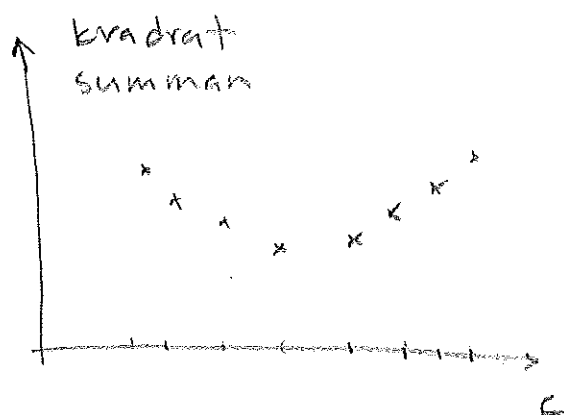 kvadrat
summan